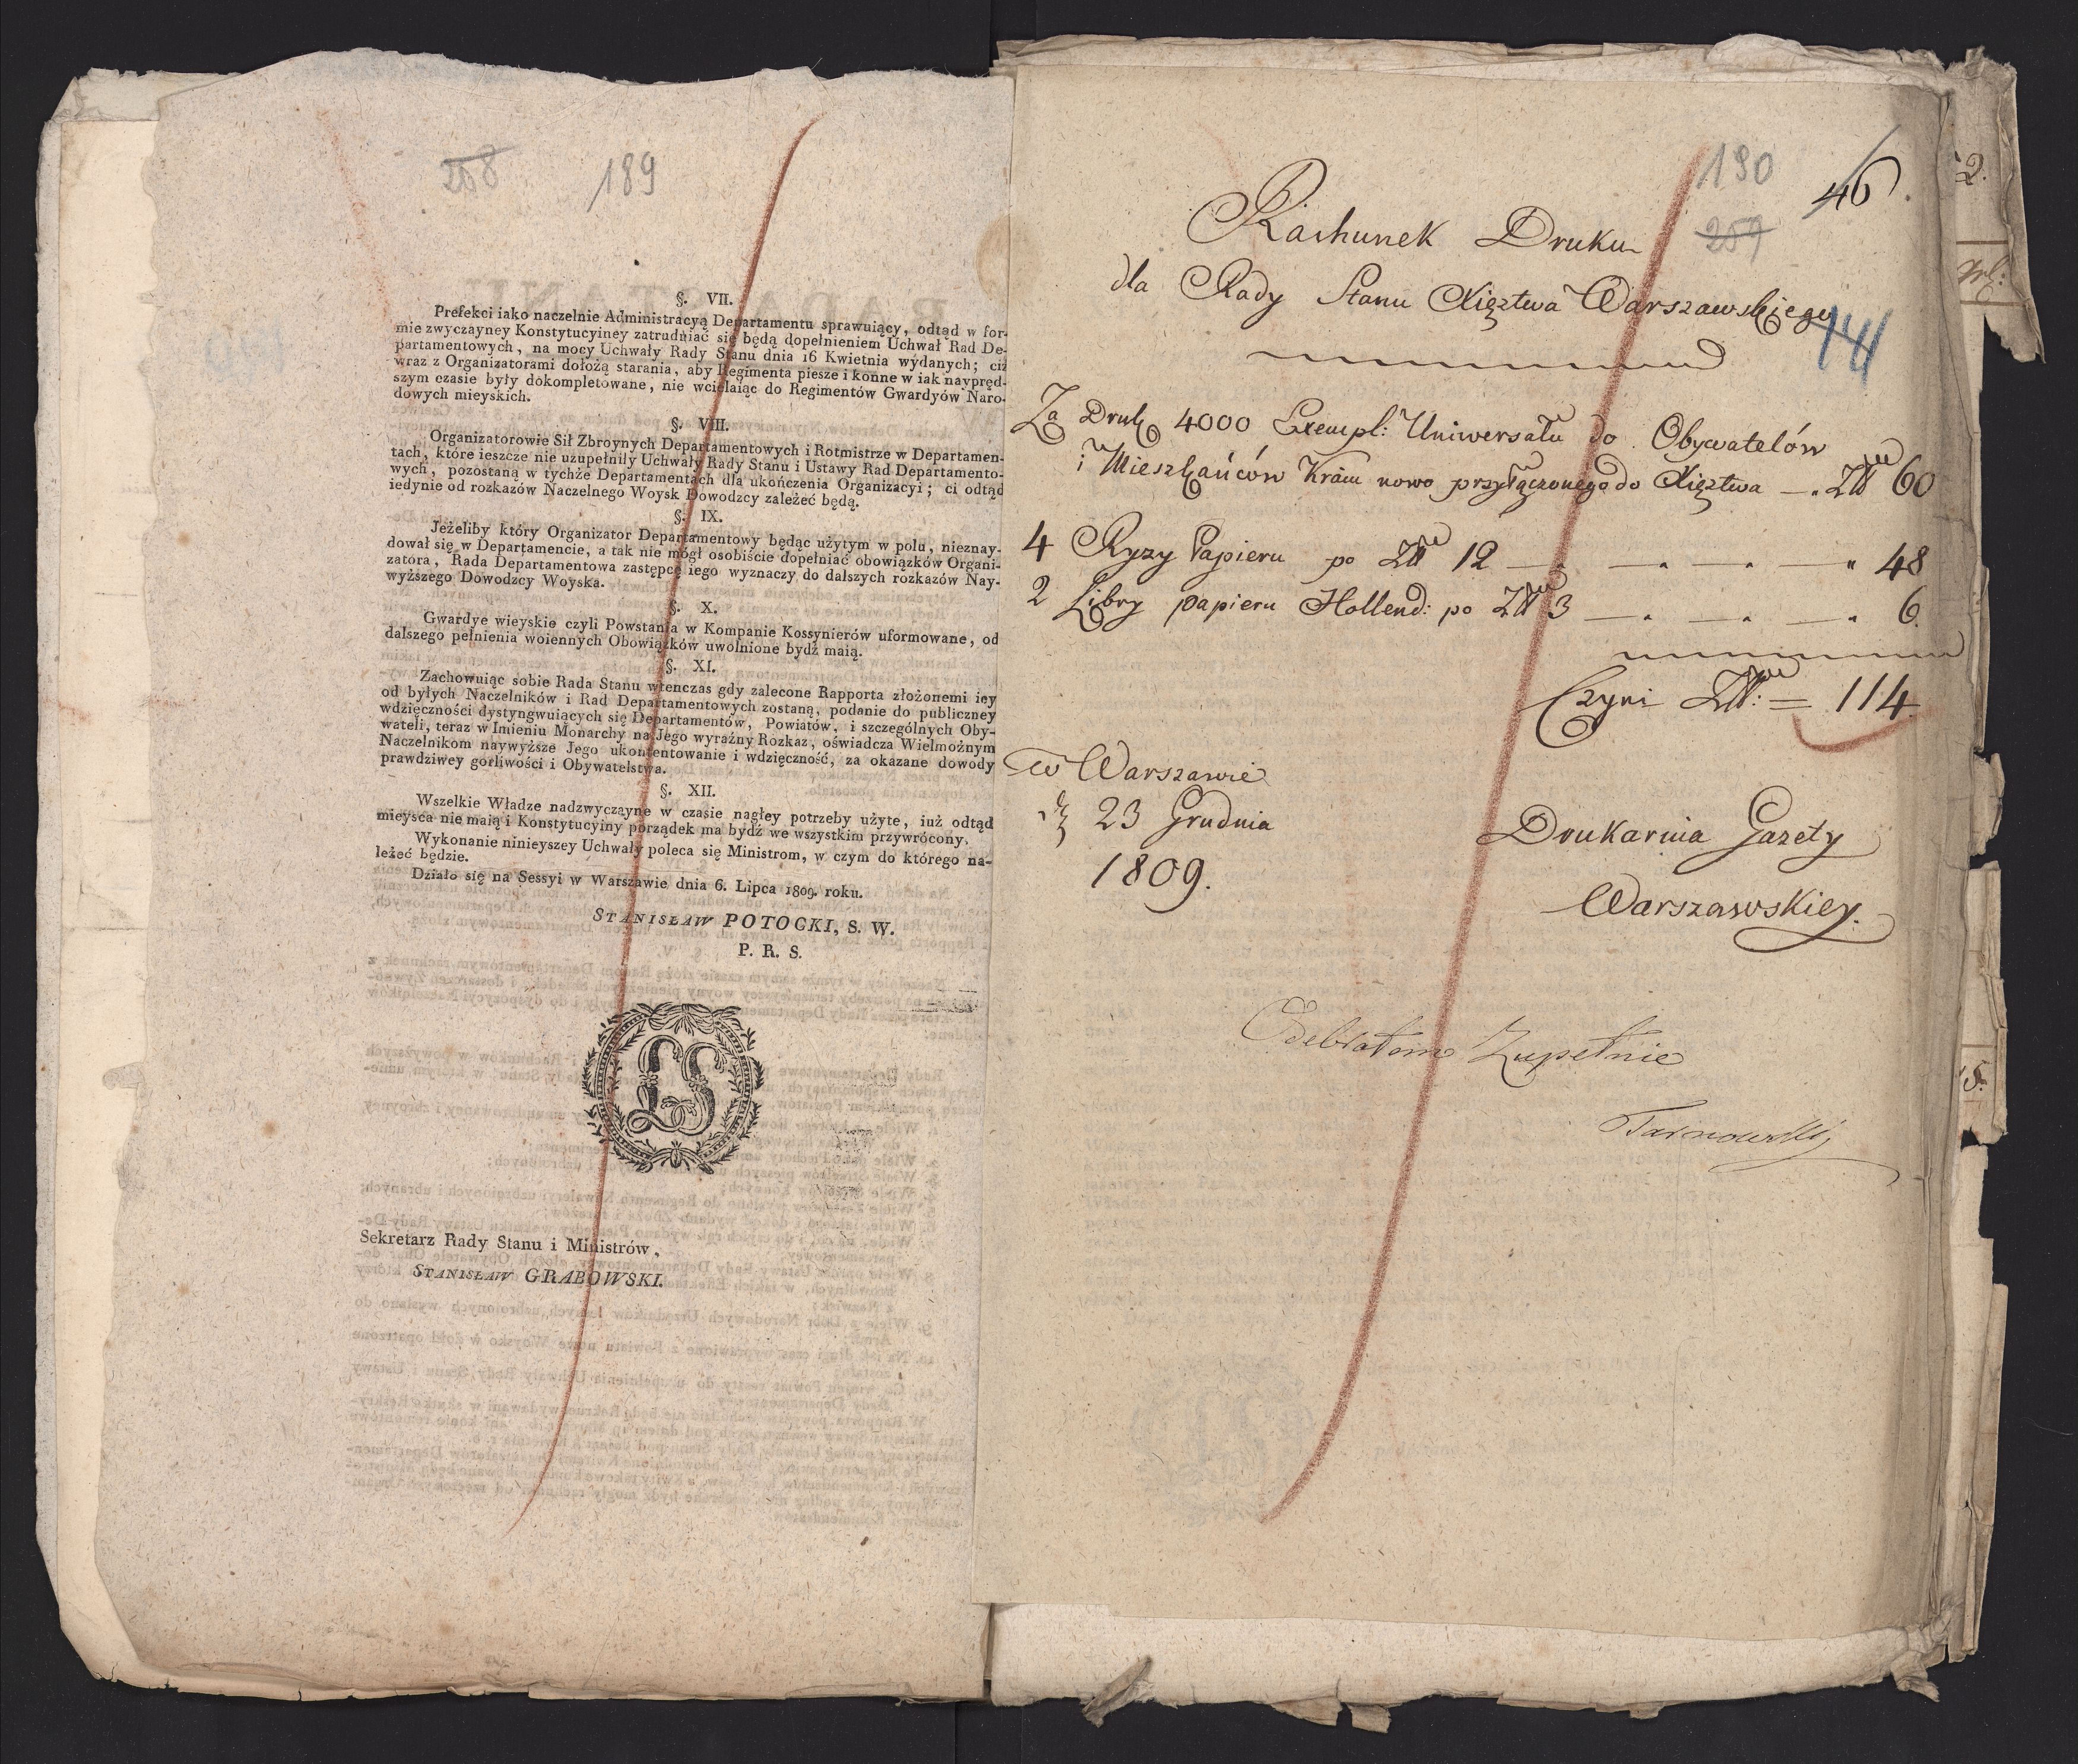 208 189
§. VII.
Prefekci iako naczelnie Administracyą Departamentu sprawuiący, odtąd w for-
mie zwyczayney Konstytucyiney zatrudniać się będą dopełnieniem Uchwał Rad De-
partamentowych, na mocy Uchwały Rady Stanu dnia 16 Kwietnia wydanych; ciż
wraz z Organizatorami dołożą starania, aby Regimenta piesze i konne w iak naypręd-
szym czasie były dokompletowane, nie wcielaiąc do Regimentów Gwardyów Naro-
dowych mieyskich.
§. VIII.
Organizatorowie Sił Zbroynych Departamentowych i Rotmistrze w Departamen-
tach, które ieszcze nie uzupełniły Uchwały Rady Stanu i Ustawy Rad Departamento-
wych, pozostaną w tychże Departamentach dla ukończenia Organizacyi; ci odtąd
iedynie od rozkazów Naczelnego Woysk Dowodzcy zależeć będą.
§. IX.
Jeżeliby który Organizator Departamentowy będąc użytym w polu, nieznay-
dował się w Departamencie, a tak nie mógł osobiście dopełniać obowiązków Organi-
zatora, Rada Departamentowa zastępcę iego wyznaczy do dalszych rozkazów Nay-
wyższego Dowodzcy Woyska.
§. X.
Gwardye wieyskie czyli Powstania w Kompanie Kossynierów uformowane, od
dalszego pełnienia woiennych Obowiązków uwolnione bydź maią.
§. XI.
Zachowuiąc sobie Rada Stanu wtenczas gdy zalecone Rapporta złożonemi iey
od byłych Naczelników i Rad Departamentowych zostaną, podanie do publiczney
wdzięczności dystyngwuiących się Departamentów, Powiatów, i szczególnych Oby-
wateli, teraz w Imieniu Monarchy na Jego wyraźny Rozkaz, oświadcza Wielmożnym
Naczelnikom naywyższe Jego ukontentowanie i wdzięczność, za okazane dowody
prawdziwey gorliwości i Obywatelstwa.
§. XII.
Wszelkie Władze nadzwyczayne w czasie nagłey potrzeby użyte, iuż odtąd
mieysca nie maią i Konstytucyiny porządek ma bydź we wszystkim przywrócony.
Wykonanie ninieyszey Uchwały poleca się Ministrom, w czym do którego na-
leżeć będzie.
Działo się na Sessyi w Warszawie dnia 6. Lipca 1809. roku.
STANISŁAW POTOCKI, S. W.
P. R. S.
LS
Sekretarz Rady Stanu i Ministrów.
STANISŁAW GRABOWSKI.
190
46
Rachunek Druku
dla Rady Stanu Xięztwa Warszawskiego
Za Druk 4000 Exempl: Uniwersału do Obywatelów
i Mieszkańców Kraiu nowo przyłączonego do Xięztwa Zł 60
4 Ryzy Papieru po Zł 12 48
2 Libry papieru Hollend: po Zł 3 6.
Czyni Zł: = 114.
w Warszawie
23 Grudnia
1809.
Drukarnia Gazety
Warszawskiey.
Odebrałem Zupełnie
Tarnowski